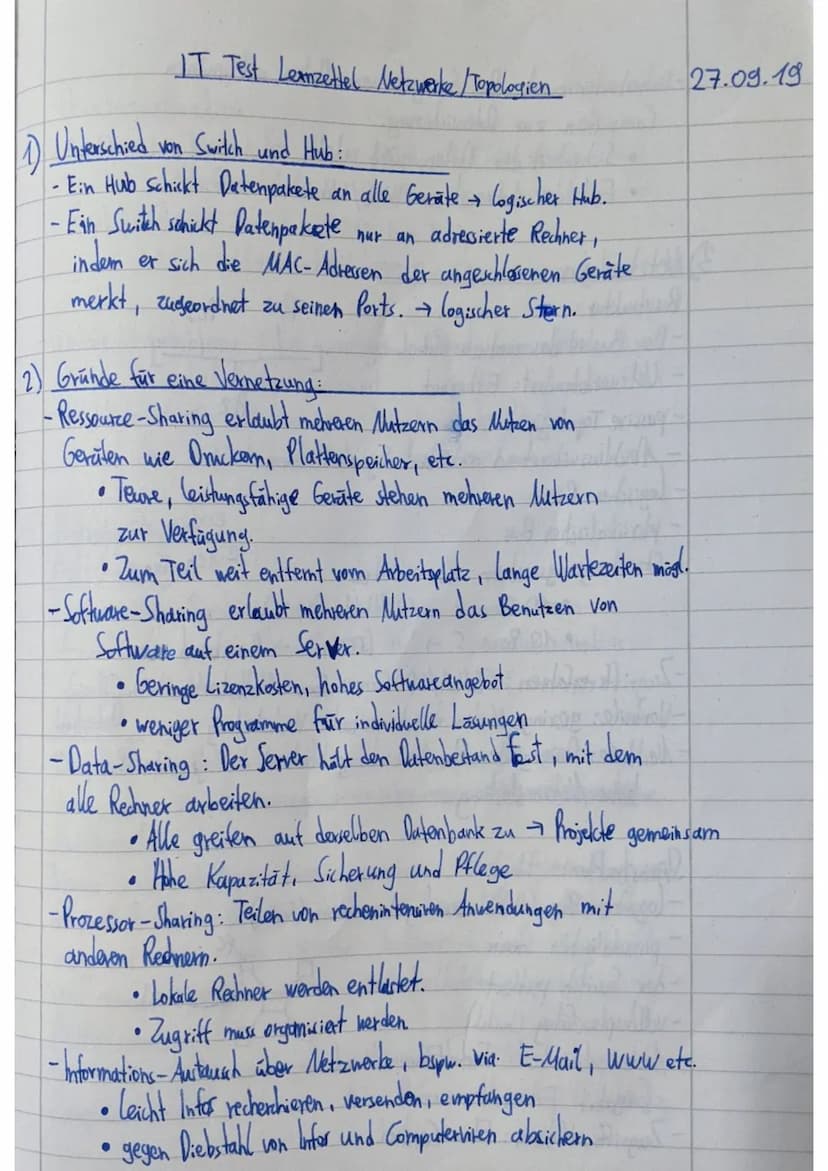 IT Test Lernzettel Netzwerke/Topologien 27.09.19
1) Unterschied von Switch und Hub:
- Ein Hub schickt Datenpakete an alle Geräte → logischer Hub.
- Ein Switch schickt Datenpakete nur an adressierte Rechner,
indem er sich die MAC-Adressen der angeschlossenen Geräte
merkt, zugeordnet zu seinen Ports. → logischer Stern.
2) Gründe für eine Vernetzung:
- Ressource-Sharing erlaubt mehreren Nutzern das Nutzen von
Geräten wie Druckern, Plattenspeicher, etc.
• Teure, leistungsfähige Geräte stehen mehreren Nutzern
zur Verfügung.
• Zum Teil weit entfernt vom Arbeitsplatz, lange Wartezeiten mögl.
- Software-Sharing erlaubt mehreren Nutzern das Benutzen von
Software auf einem Server.
• Geringe Lizenzkosten, hohes Softwareangebot
• weniger Programme für individuelle Lösungen
- Data-Sharing: Der Server hält den Datenbestand fest, mit dem
alle Rechner arbeiten.
• Alle greifen auf derselben Datenbank zu → Projekte gemeinsam
• Hohe Kapazität, Sicherung und Pflege
- Prozessor-Sharing: Teilen von rechenintensiven Anwendungen mit
anderen Rechnern.
• Lokale Rechner werden entlastet.
• Zugriff muss organisiert werden
- Informations-Austausch über Netzwerke, bspw. via. E-Mail, www etc.
• leicht Infos recherchieren, versenden, empfangen
• gegen Diebstahl von Infos und Computerviren absichern